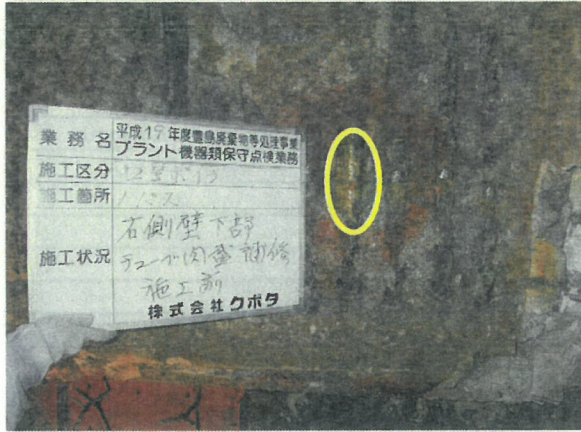 業務名 平成19年度豊島廃棄物等処理事業
プラント機器類保守点検業務
施工区分
施工箇所 1パス
施工状況 右側壁下部
チューブ肉盛補修
施工前
株式会社クボタ